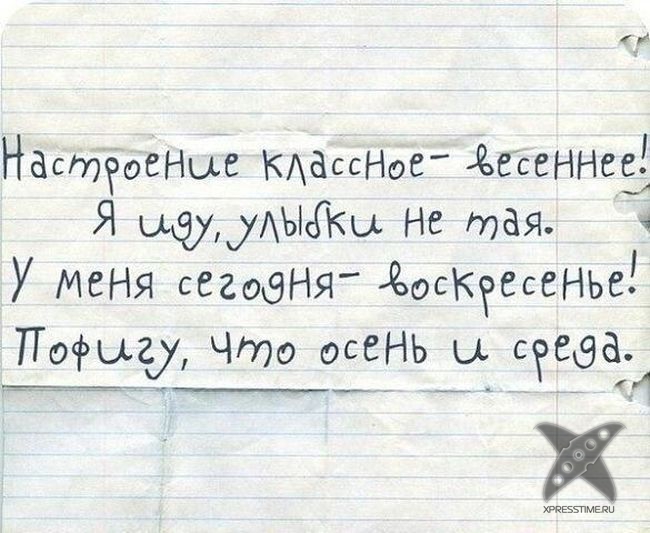 Настроение классное- весеннее!
Я иду, улыбки не тая.
У меня сегодня- воскресенье!
Пофигу, что осень и среда.
XPRESSTIME.RU